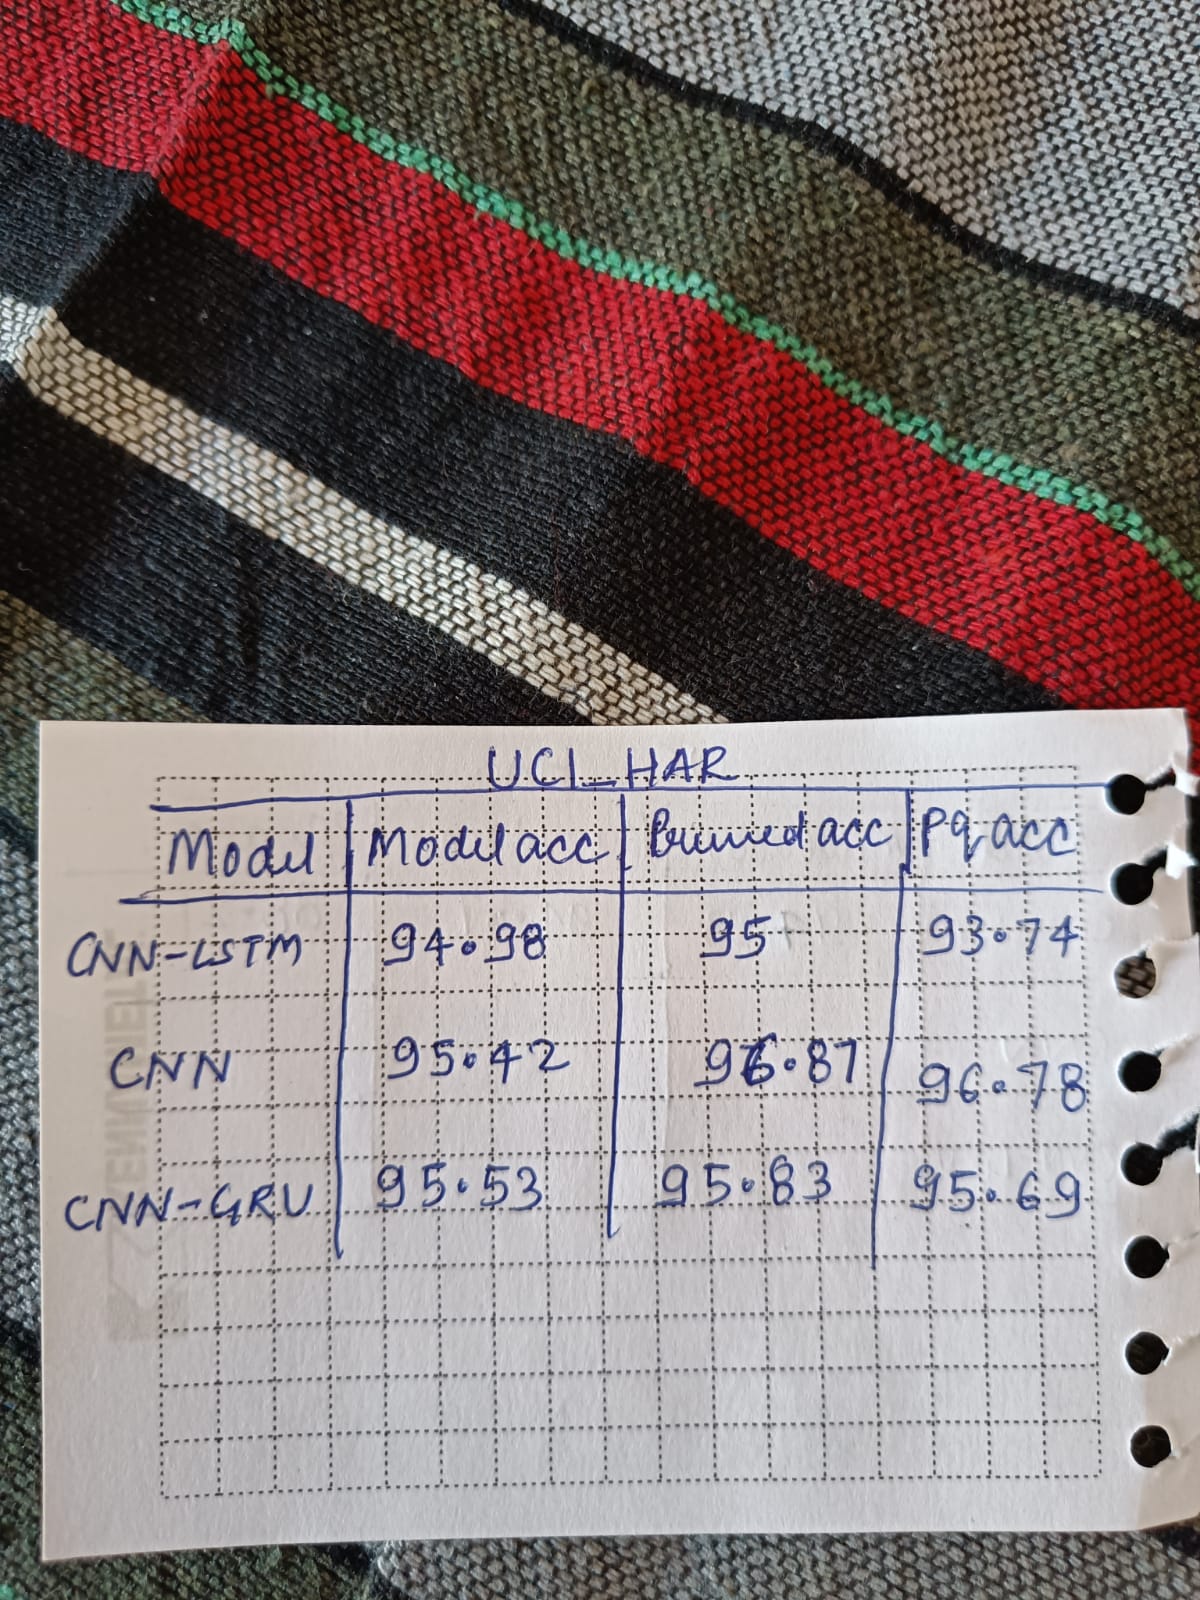 UCI_HAR
Model Model acc Pruned acc Pq acc
CNN-LSTM 94.98 95 93.74
CNN 95.42 96.87 96.78
CNN-GRU 95.53 95.83 95.69